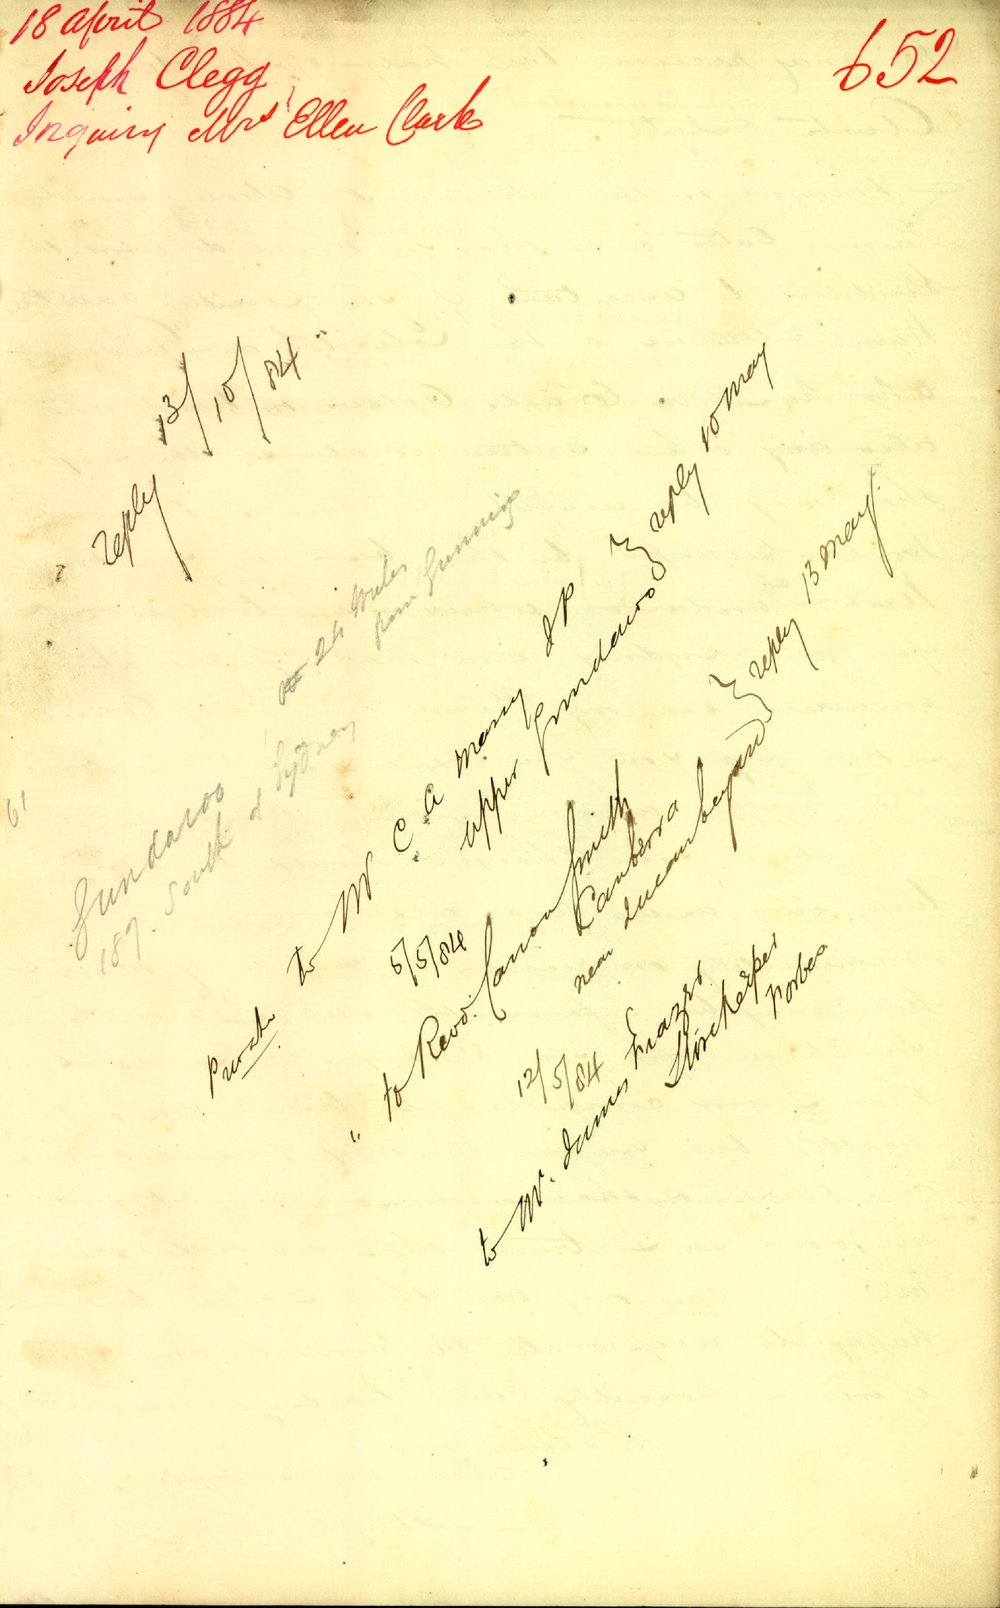 18 April 1884
Joseph Clegg
Inquiry Mrs Ellen Clark
652
reply 13/10/84
24 Miles
from Gunning
Gundaroo
187. South of Sydney
61
to Mr C A Massy J P
Upper Gundaroo } reply 10 May
5/5/84
" to Revd. Canon Smith
Canberra
near Queanbeyan } reply 13 May.
12/5/84
to Mr. James Frazer
Storekeeper
Forbes